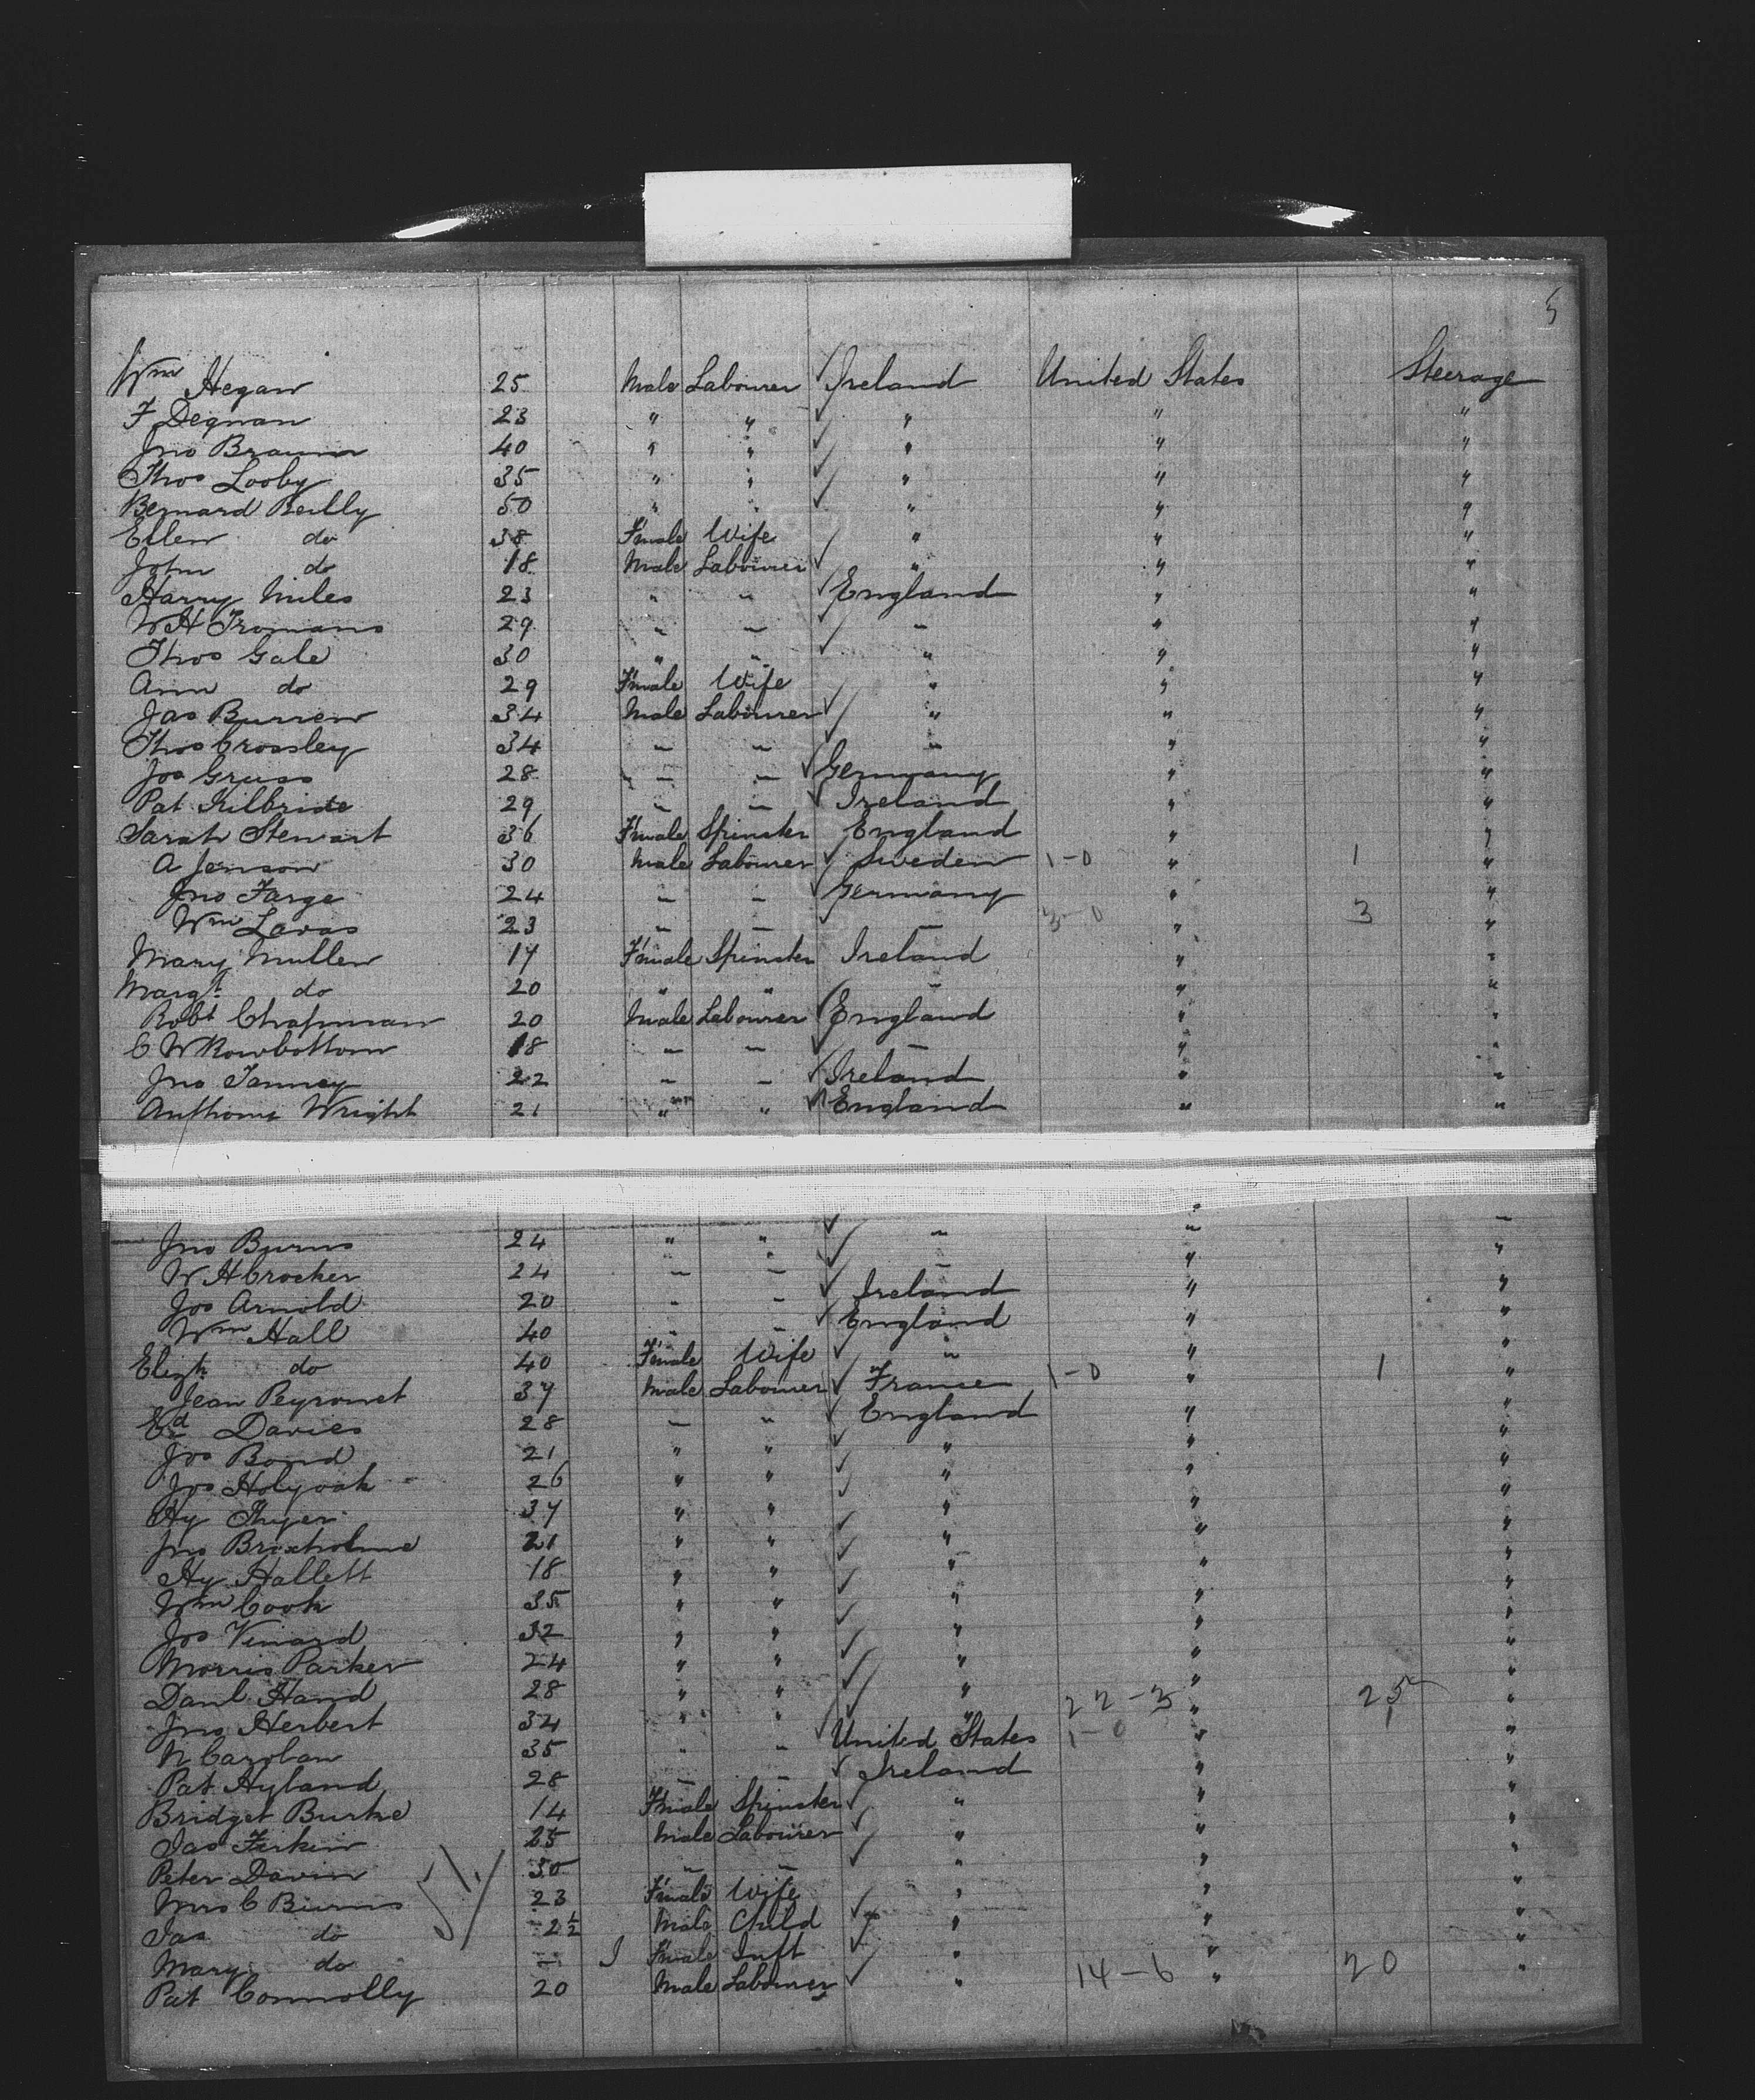 5
Wm Hegan 25 Male Labourer Ireland United States Steerage
F Degnan 23 " " " " "
Jno Braunn 40 " " " " "
Thos Looby 35 " " " " "
Bernard Reilly 50 " " " " "
Ellen do 38 Fmale Wife " " "
John do 18 Male Labourer " " "
Harry Miles 23 " " England " "
W H Fromans 29 " " " " "
Thos Gale 30 " " " " "
Ann do 29 F'male Wife " " "
Jas Burren 34 Male Labourer " " "
Thos Crossley 34 " " " " "
Jos Gruss 28 " " Germany " "
Pat Kilbride 29 " " Ireland " "
Sarah Stewart 36 F'male Spinster England " "
A Jenson 30 Male Labourer Sweden 1-0 " 1 "
Jno Farge 24 " " Germany " "
Wm Lavas 23 " " " 3-0 " 3 "
Mary Mullen 17 F'male Spinster Ireland " "
Margt do 20 " " " " "
Robt Chapman 20 Male Labourer England " "
C W Rowbottom 18 " " " " "
Jno Tanney 22 " " Ireland " "
Anthony Wright 21 " " England " "
Jno Burns 24 " " " " "
W H Crocker 24 " " " " "
Jos Arnold 20 " " Ireland " "
Wm Hall 40 " " England " "
Elizh do 40 F'male Wife " " "
Jean Peyronet 37 Male Labourer France 1-0 " 1 "
Ed Davies 28 " " England " "
Jos Bond 21 " " " " "
Jos Holyoak 26 " " " " "
Hy Thyer 37 " " " " "
Jno Brixholme 21 " " " " "
Hy Hallett 18 " " " " "
Wm Cook 35 " " " " "
Jos Vinard 32 " " " " "
Morris Parker 24 " " " " "
Danl Hand 28 " " " " "
Jno Herbert 34 " " " 22-3 " 25 "
N Carolan 35 " " United States 1-0 " 1 "
Pat Hyland 28 " " Ireland " "
Bridget Burke 14 F'male Spinster " " "
Jas Ferkin 25 Male Labourer " " "
Peter Davin 30 " " " " "
Mrs C Burns 23 F'male Wife " " "
Jas do 2½ Male Child " " "
Mary do - I F'male Inft " " "
Pat Connolly 20 Male Labourer " 14-6 " 20 "